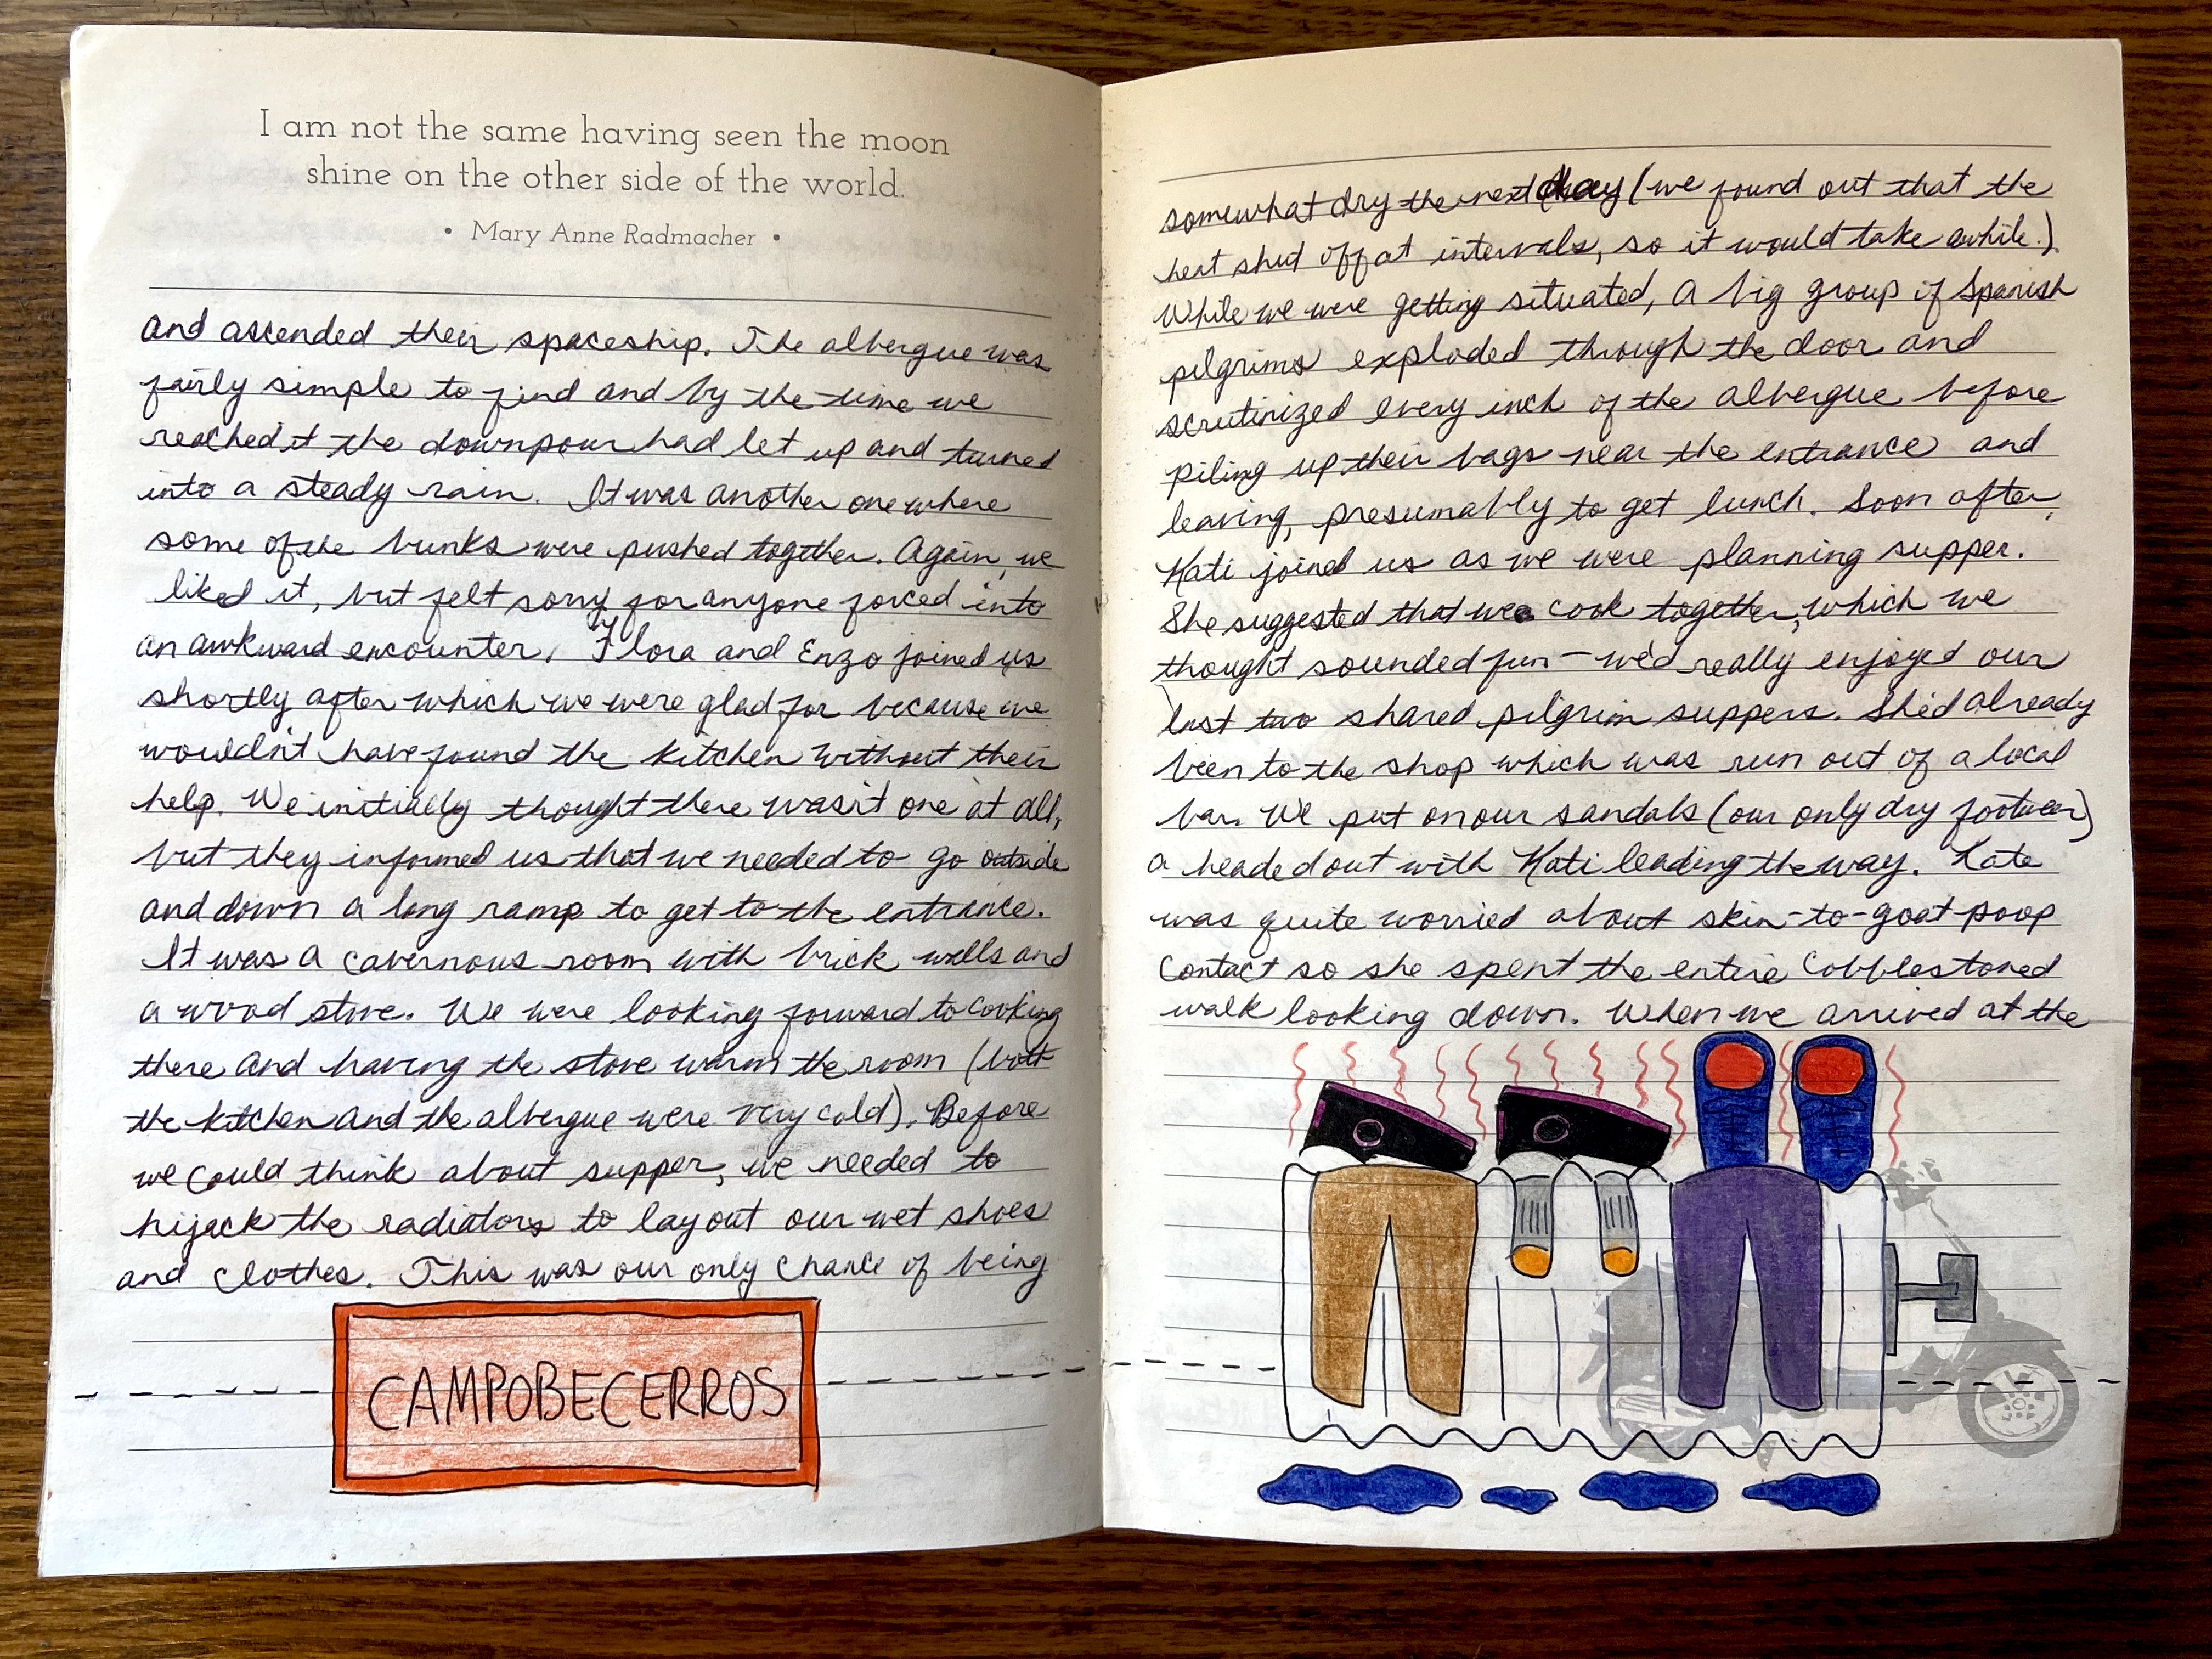 I am not the same having seen the moon
shine on the other side of the world.
• Mary Anne Radmacher •
and ascended their spaceship. The albergue was
fairly simple to find and by the time we
reached it the downpour had let up and turned
into a steady rain. It was another one where
some of the bunks were pushed together. Again, we
liked it, but felt sorry for anyone forced into
an awkward encounter. Flora and Enzo joined us
shortly after which we were glad for because we
wouldn't have found the kitchen without their
help. We initially thought there wasn't one at all,
but they informed us that we needed to go outside
and down a long ramp to get to the entrance.
It was a cavernous room with brick walls and
a wood stove. We were looking forward to cooking
there and having the stove warm the room (both
the kitchen and the albergue were very cold). Before
we could think about supper, we needed to
hijack the radiators to lay out our wet shoes
and clothes. This was our only chance of being
CAMPOBECERROS
somewhat dry the next day (we found out that the
heat shut off at intervals, so it would take awhile.).
While we were getting situated, a big group of Spanish
pilgrims exploded through the door and
scrutinized every inch of the albergue before
piling up their bags near the entrance and
leaving, presumably to get lunch. Soon after,
Kati joined us as we were planning supper.
She suggested that we cook together, which we
thought sounded fun – we'd really enjoyed our
last two shared pilgrim suppers. She'd already
been to the shop which was run out of a local
bar. We put on our sandals (our only dry footwear)
a headed out with Kati leading the way. Kate
was quite worried about skin-to-goat-poop
contact so she spent the entire cobblestoned
walk looking down. When we arrived at the